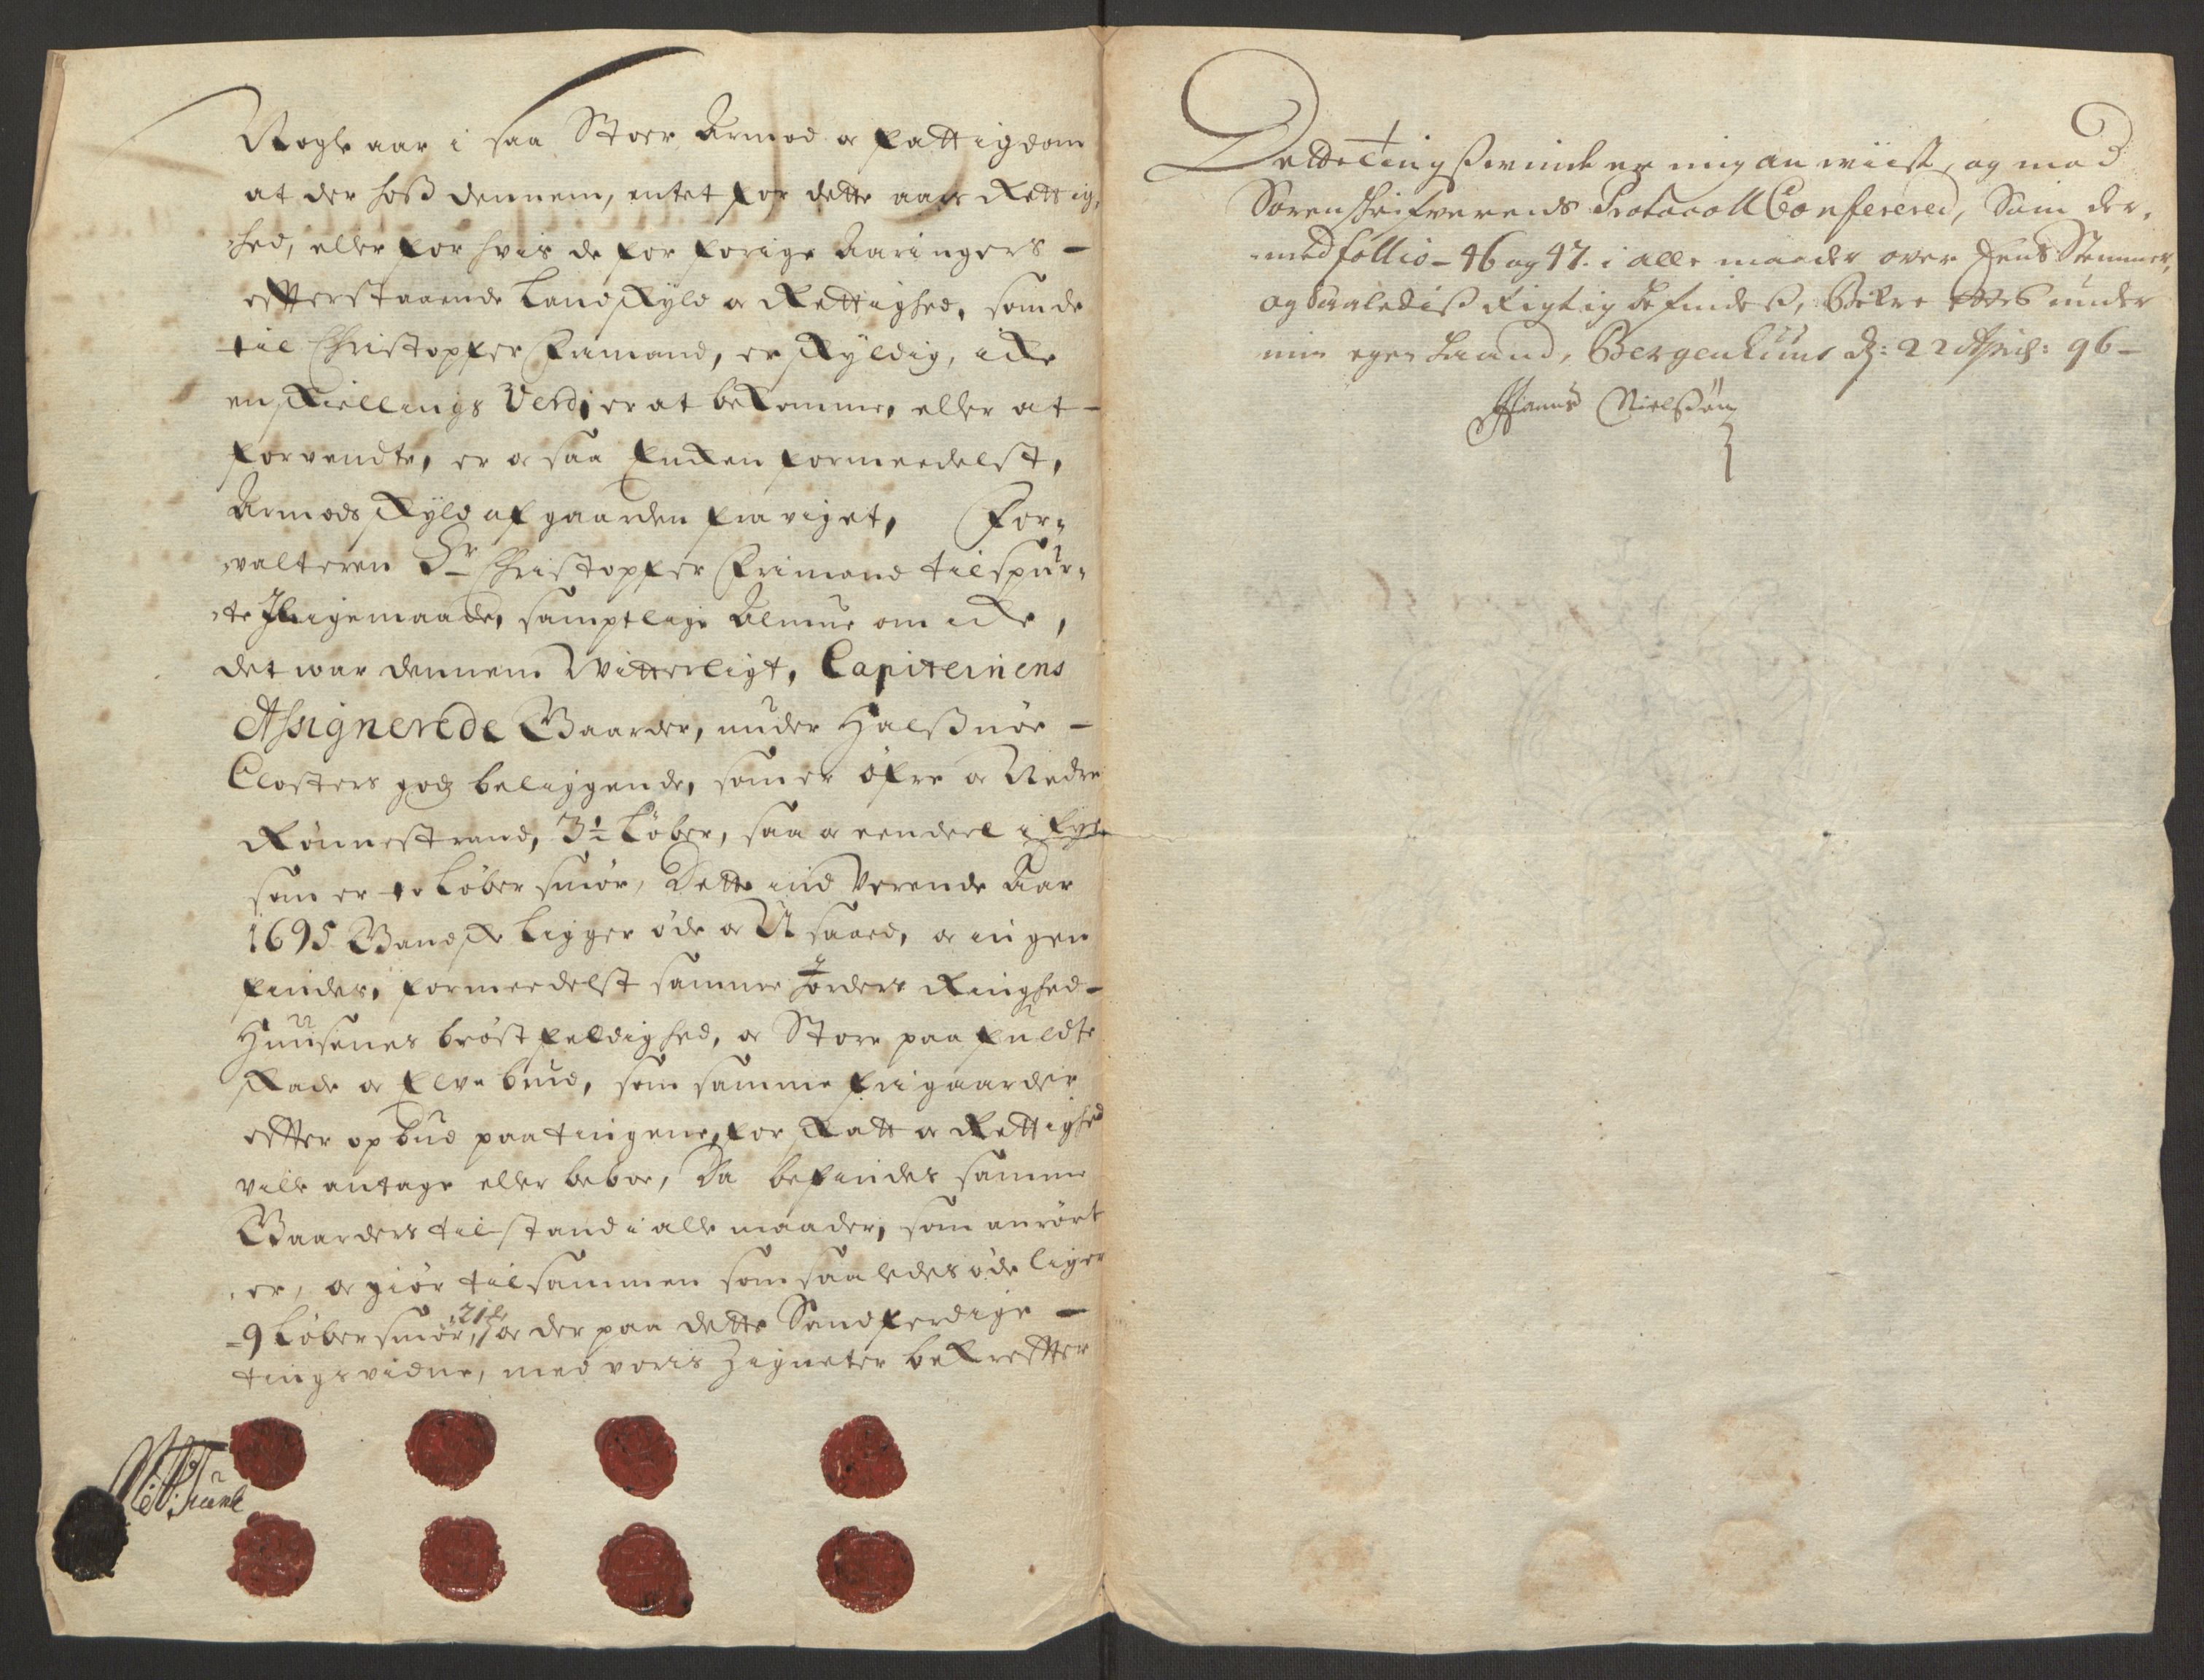 Nogle aar i saa Stoer Armod oc fattigdom
at der hoß dennem, intet for dette aars Rettig,
hed, eller for hvis de for forige Aaringers –
efterstaaende Landskyld oc Rettighed, som de
til Christopher Frimand, er skyldig, icke
en skiellings Verdi er at bekomme, eller at –
forvendte, er oc saa Encken formeedelst,
Armods skyld af gaarden fraviget, For„
valteren Sr Christopher Frimand tilspur„
te Jligemaade, samptlige Almue om icke,
det war dennem Witterligt, Capiteinens
Assignerede Gaarder, under Halßnøe –
Closters godz beliggende, som er øfre oc Nedre
Rønnestrand, 3½ Løber, saa oc eendeel i
som er to Løber smør, Dette ind Verende Aar
1695 Gandske Ligger øde oc Usaaed, oc ingen
findes, formeedelst samme Jorders Ringhed –
Huusenes brøstfeldighed, oc Store paafuldte
skade oc Elve brud, som samme gaarder
efter opbud paa tingene, for skatt oc Rettighed
ville antage eller beboe, Da befindes samme
Gaarders tilstand i alle maader, som anrørt
er, oc giør tilsammen som saaledes øde liger
9 Løber smør, oc der paa dette Sandferdige –
tingsvidne, med voris Zigneter bekrefter

Dette Tingßwinde er mig an wiist, og med
Sorenskrifverens Protocoll Confereret, Som der,
med follio – 46 og 47. i alle maader ofver Eens Stemmer,
og Saaledis Rigtig befindes, Bekreftes under
min egen Haand, Bergenhuus d: 22 Apriel: 96 –
Hanns Nielßøn